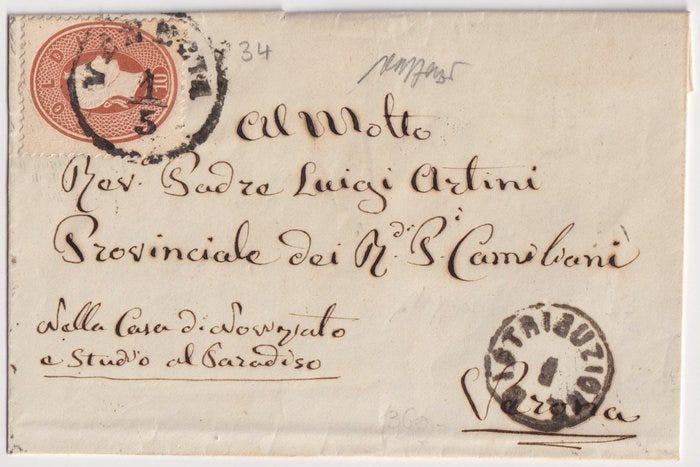 SOLDI 10
VENEZIA
1/5
34
Al Molto
Rev. Padre Luigi Artini
Provinciale dei R.di P.i Camiliani
Nella Casa di Noviziato
e Studio al Paradiso
DISTRIBUZIONE
Verona